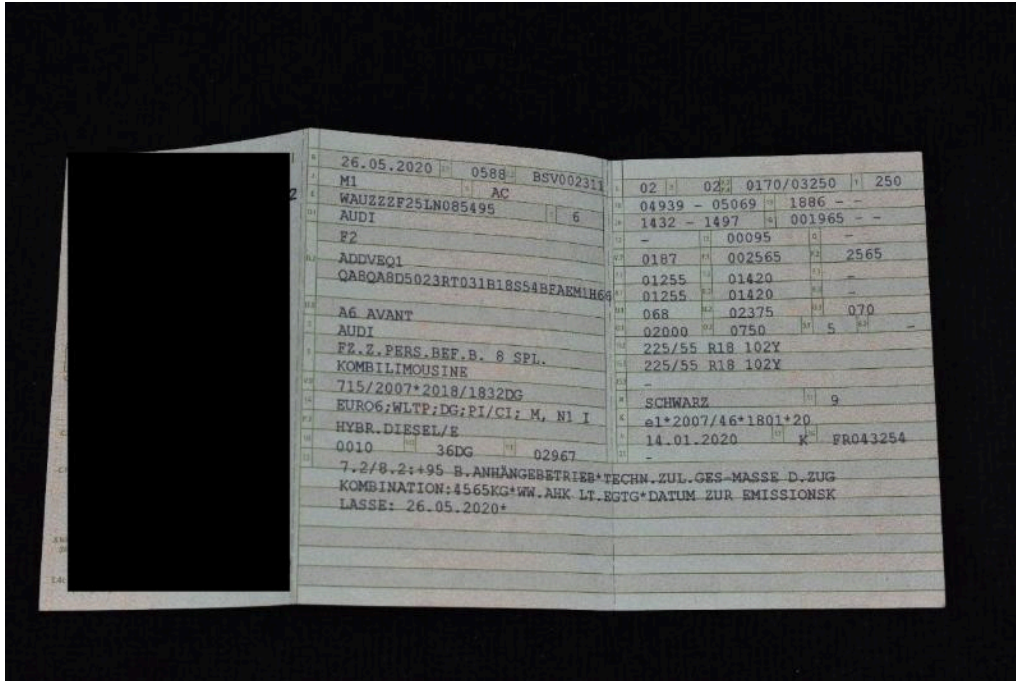 2
26.05.2020 0588 BSV002311
M1 AC
WAUZZZF25LN085495 6
AUDI
F2
ADDVEQ1
QA8QA8D5023RT031B18S54BFAEM1H66
A6 AVANT
AUDI
FZ.Z.PERS.BEF.B. 8 SPL.
KOMBILIMOUSINE
715/2007*2018/1832DG
EURO6;WLTP;DG;PI/CI; M, N1 I
HYBR.DIESEL/E
0010 36DG 02967
02 02 0170/03250 250
04939 - 05069 1886 - -
1432 - 1497 001965 - -
- 00095 -
0187 002565 2565
01255 01420 -
01255 01420 -
068 02375 070
02000 0750 5 -
225/55 R18 102Y
225/55 R18 102Y
-
SCHWARZ 9
e1*2007/46*1801*20
14.01.2020 K FR043254
-
7.2/8.2:+95 B.ANHÄNGEBETRIEB*TECHN.ZUL.GES-MASSE D.ZUG
KOMBINATION:4565KG*WW.AHK LT.EGTG*DATUM ZUR EMISSIONSK
LASSE: 26.05.2020*